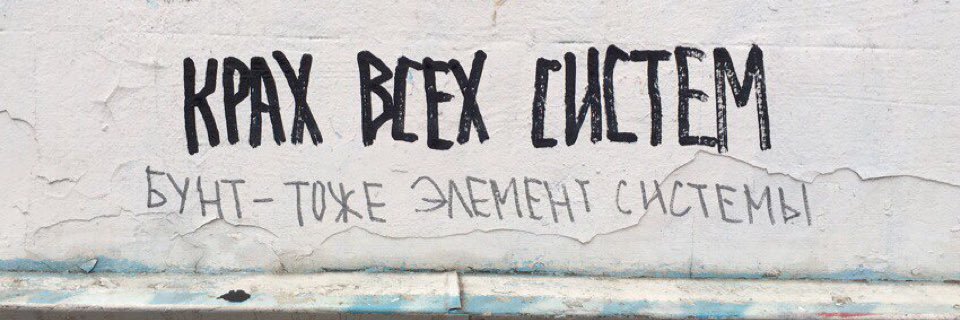 КРАХ ВСЕХ СИСТЕМ
БУНТ - ТОЖЕ ЭЛЕМЕНТ СИСТЕМЫ